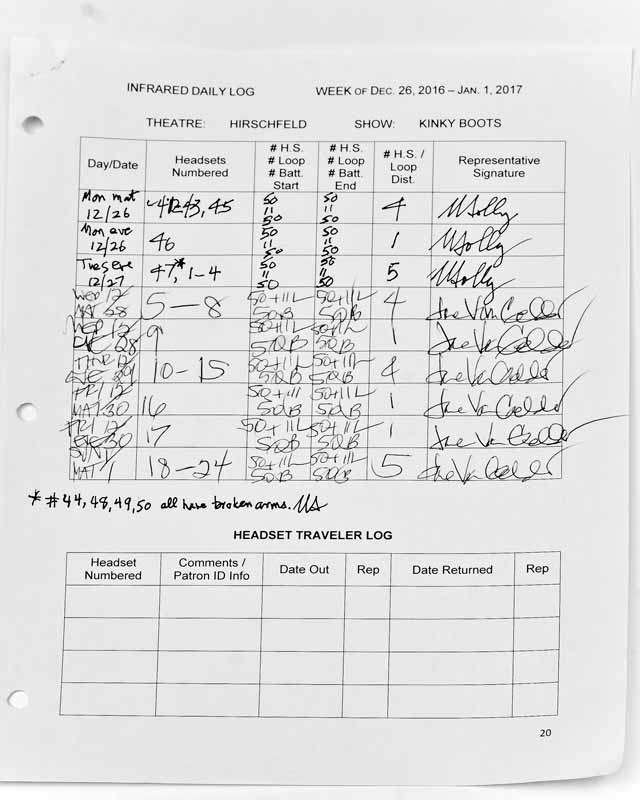 INFRARED DAILY LOG WEEK OF DEC. 26, 2016 – JAN. 1, 2017
THEATRE: HIRSCHFELD SHOW: KINKY BOOTS
Day/Date Headsets Numbered # H.S. # Loop # Batt. Start # H.S. # Loop # Batt. End # H.S. / Loop Dist. Representative Signature
Mon mat 12/26 43, 45 50 11 50 50 11 50 4
Mon eve 12/26 46 50 11 50 50 11 50 1
Tues eve 12/27 47,* 1-4 50 11 50 50 11 50 5
WED 12/28 MAT 5-8 50+11L 50B 50+11L 50B 4
WED 12/28 EVE 9 50+11L 50B 50+11L 50B 1
THUR 12/29 EVE 10-15 50+11L 50B 50+11L 50B 4
FRI 12/30 MAT 16 50+11L 50B 50+11L 50B 1
FRI 12/30 EVE 17 50+11L 50B 50+11L 50B 1
SUN 1/1 MAT 18-24 50+11L 50B 50+11L 50B 5
* #44, 48, 49, 50 all have broken arms.
HEADSET TRAVELER LOG
Headset Numbered Comments / Patron ID Info Date Out Rep Date Returned Rep
20